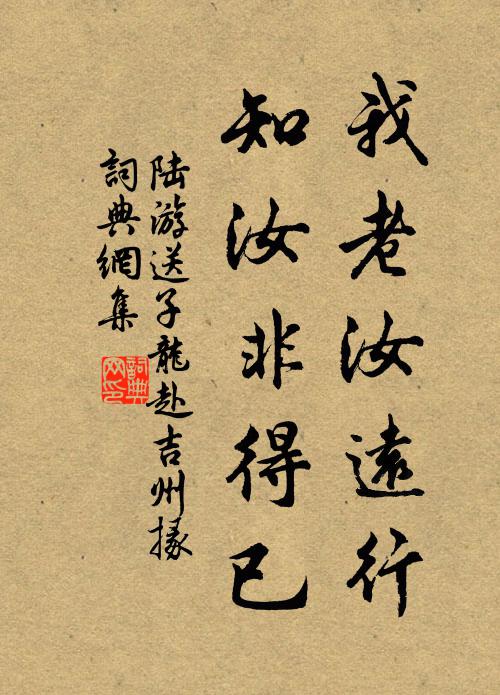 我老汝遠行
知汝非得已
陸游送子龍赴吉州掾
詞典網集
詞典网印